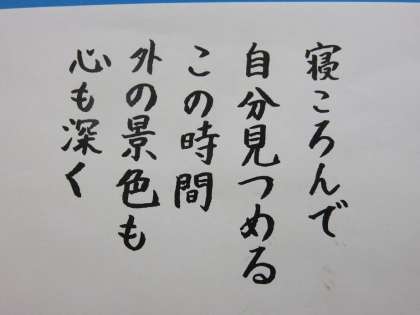 寝ころんで
自分見つめる
この時間
外の景色も
心も深く